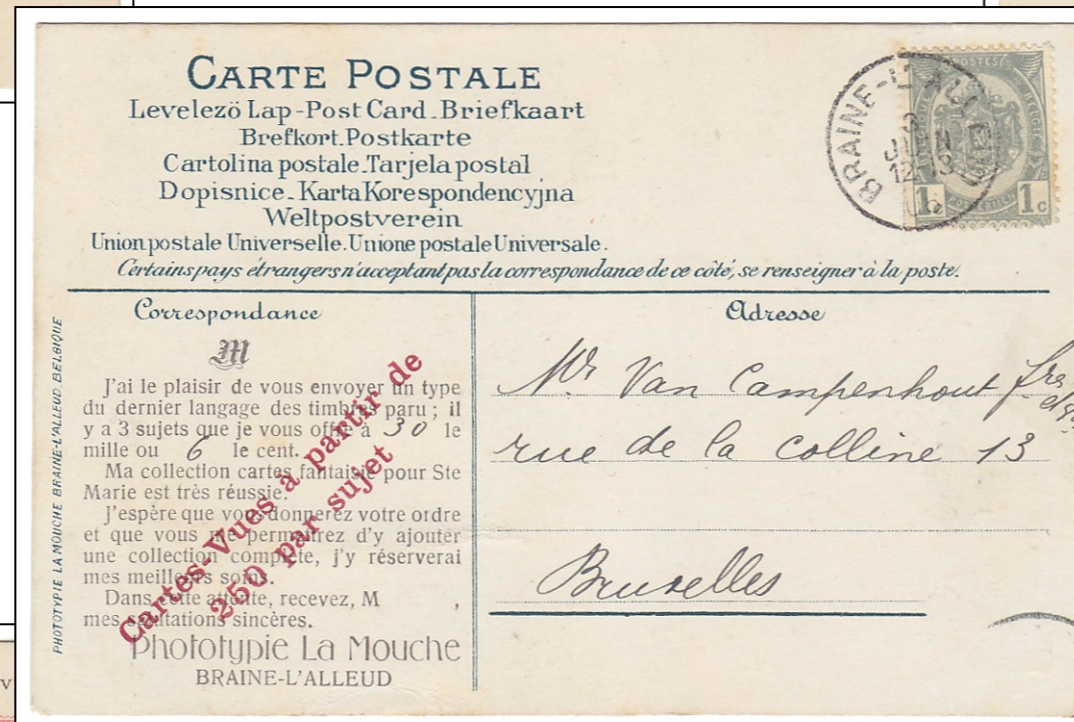 CARTE POSTALE
Levelezö Lap-Post Card-Briefkaart
Brefkort.Postkarte
Cartolina postale.Tarjela postal
Dopisnice-Karta Korespondencyjna
Weltpostverein
Union postale Universelle.Unione postale Universale.
Certains pays étrangers n'acceptant pas la correspondance de ce côté, se renseigner à la poste.
BRAINE-L'ALLEUD
3
JUIN
POSTES
1c 1c
Correspondance
M
J'ai le plaisir de vous envoyer un type
du dernier langage des timbres paru ; il
y a 3 sujets que je vous offre à 30 le
mille ou 6 le cent.
Ma collection cartes fantaisie pour Ste
Marie est très réussie.
J'espère que vous donnerez votre ordre
et que vous me permettrez d'y ajouter
une collection complète, j'y réserverai
mes meilleurs soins.
Dans cette attente, recevez, M ,
mes salutations sincères.
Phototypie La Mouche
BRAINE-L'ALLEUD
Cartes-Vues à partir de
250 par sujet
PHOTOTYPIE LA MOUCHE BRAINE-L'ALLEUD BELGIQUE
Adresse
Mr Van Campenhout frs
rue de la colline 13
Bruxelles
V